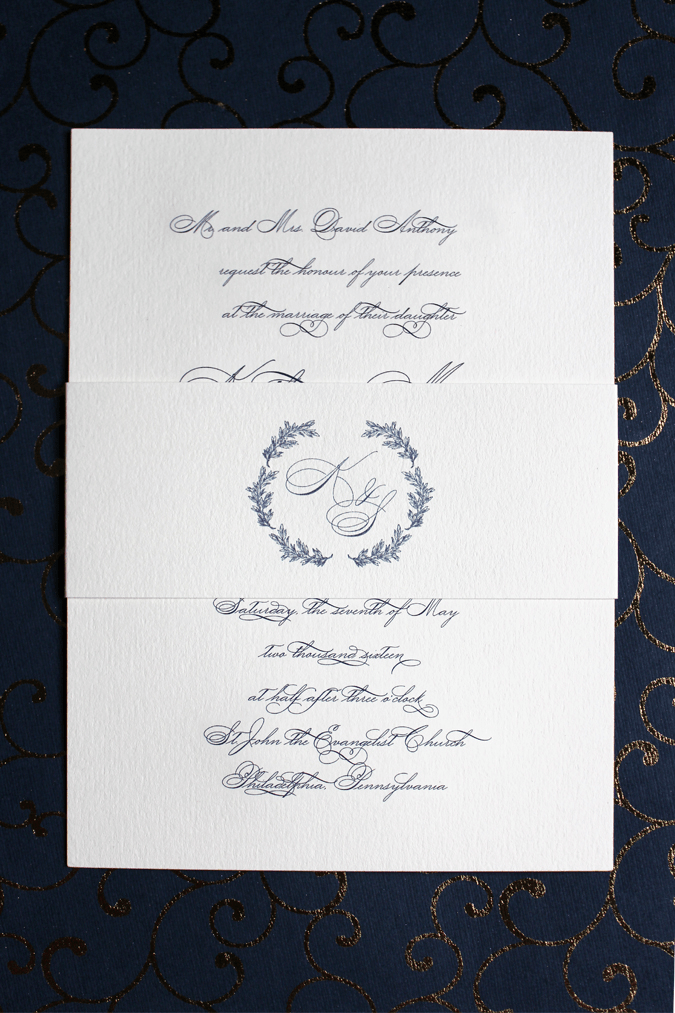 Mr. and Mrs. David Anthony
request the honour of your presence
at the marriage of their daughter
N & S
Saturday, the seventh of May
two thousand sixteen
at half after three o'clock
St John the Evangelist Church
Philadelphia, Pennsylvania